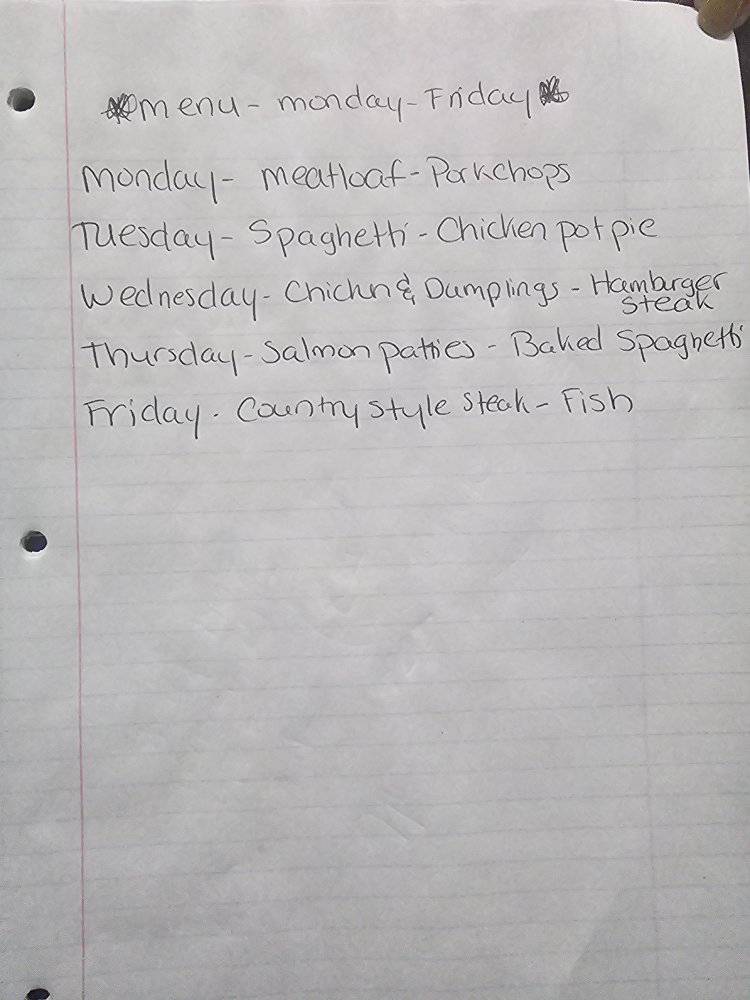 menu - monday - Friday
Monday - meatloaf - Porkchops
Tuesday - Spaghetti - Chicken pot pie
Wednesday - Chichn & Dumplings - Hamburger
steak
Thursday - Salmon patties - Baked Spaghetti
Friday - Country style steak - Fish